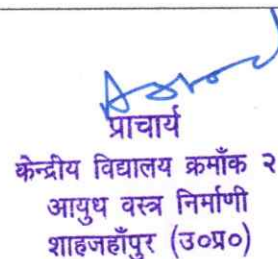 प्राचार्य
केन्द्रीय विद्यालय क्रमाँक २
आयुध वस्त्र निर्माणी
शाहजहाँपुर (उ०प्र०)